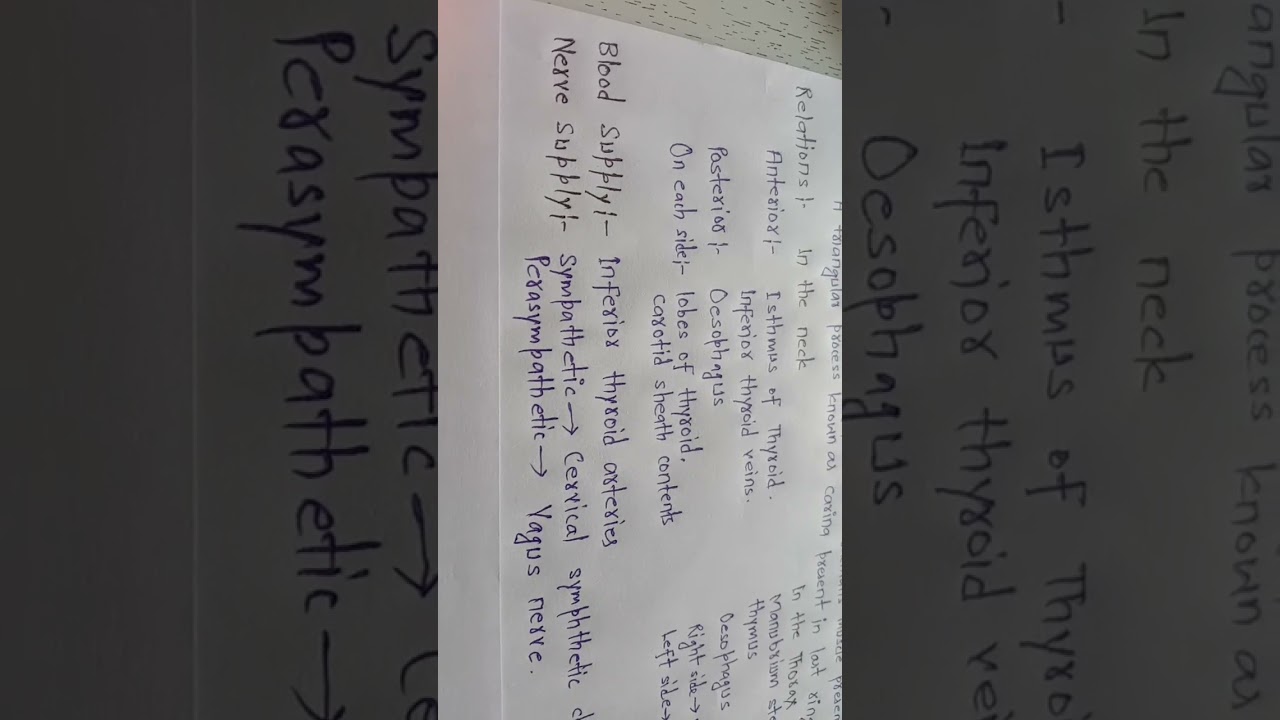 A triangular process known as carina present in last ring
Relations:- In the neck In the Thorax
Anterior:- Isthmus of Thyroid. Manubrium
Inferior thyroid veins. thymus
Posterior:- Oesophagus Oesophagus
On each side:- lobes of thyroid, Right side→
carotid sheath contents Left side→
Blood Supply:- Inferior thyroid arteries
Nerve Supply:- Sympathetic→ Cervical symphthetic
Perasympathetic→ Vagus nerve.